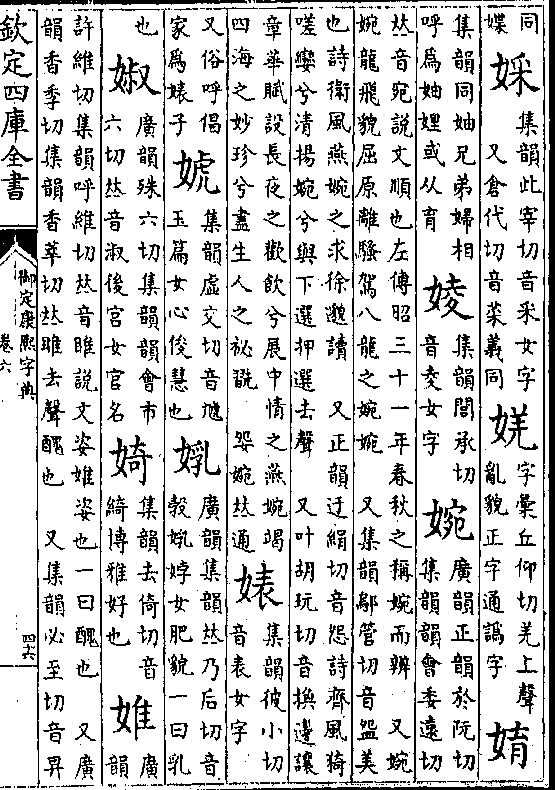 同
媟
婇
集韻此宰切音采女字
又倉代切音菜義同
㛨
字彙丘仰切羌上聲
亂貌正字通譌字
㛩
集韻同妯兄弟婦相
呼爲妯娌或从育
㛵
集韻閭承切
音夌女字
婉
廣韻正韻於阮切
集韻韻會委遠切
𠀤音宛說文順也左傳昭三十一年春秋之稱婉而辨 又婉
婉龍飛貌屈原離騷駕八龍之婉婉 又集韻鄔管切音盌美
也詩衛風燕婉之求徐邈讀 又正韻迂絹切音怨詩齊風猗
嗟孌兮清揚婉兮與下選押選去聲 又叶胡玩切音換邊讓
章華賦設長夜之歡飲兮展中情之燕婉竭
四海之妙珍兮盡生人之祕翫 婜婉𠀤通
婊
集韻彼小切
音表女字
又俗呼倡
家爲婊子
婋
集韻虛交切音虓
玉篇女心俊慧也
㝅
廣韻集韻𠀤乃后切音
穀㜌㛔女肥貌一曰乳
也
婌
廣韻殊六切集韻韻會市
六切𠀤音淑後宮女官名
婍
集韻去倚切音
綺博雅好也
婎
廣
韻
許維切集韻呼維切𠀤音睢說文姿婎姿也一曰醜也 又廣
韻香季切集韻香萃切𠀤睢去聲醜也 又集韻必至切音畀
欽定四庫全書
御定康熙字典
卷六
四六